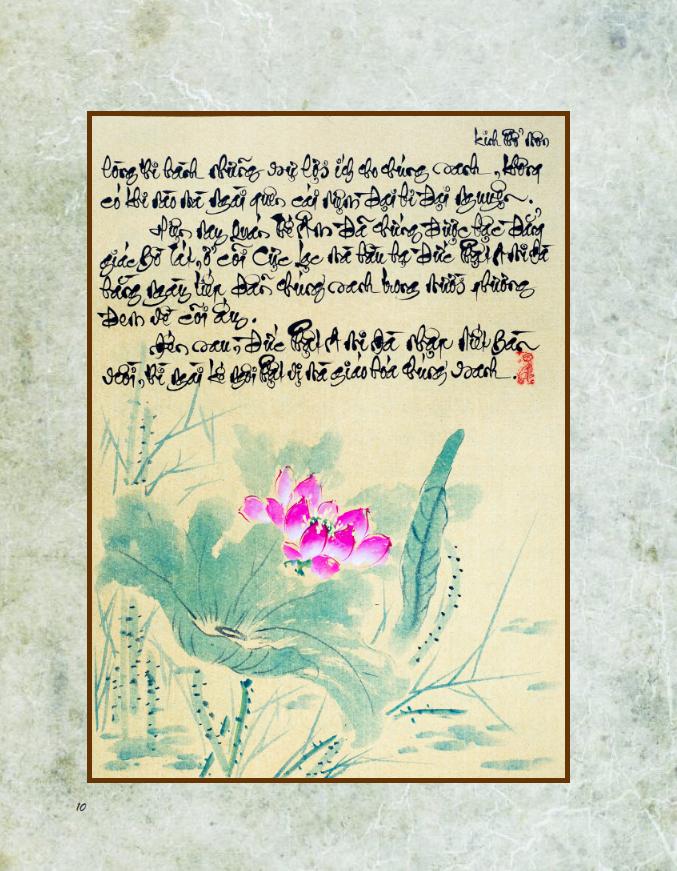 kinh Phổ Môn
lòng thi hành những sự lợi ích cho chúng sanh, không
có khi nào mà Ngài quên cái niệm Đại bi Đại nguyện.
Hiện nay Quán Thế Âm Đã chứng Được bậc Đẳng
giác Bồ tát, ở cõi Cực lạc mà hầu hạ Đức Phật A Mi Đà
hằng ngày tiếp Dẫn chúng sanh trong mười phương
Đem về cõi ấy.
Đến sau, Đức Phật A Mi Đà nhập Niết Bàn
rồi, thì Ngài kế ngôi Phật vị mà giáo hóa chúng sanh.
10